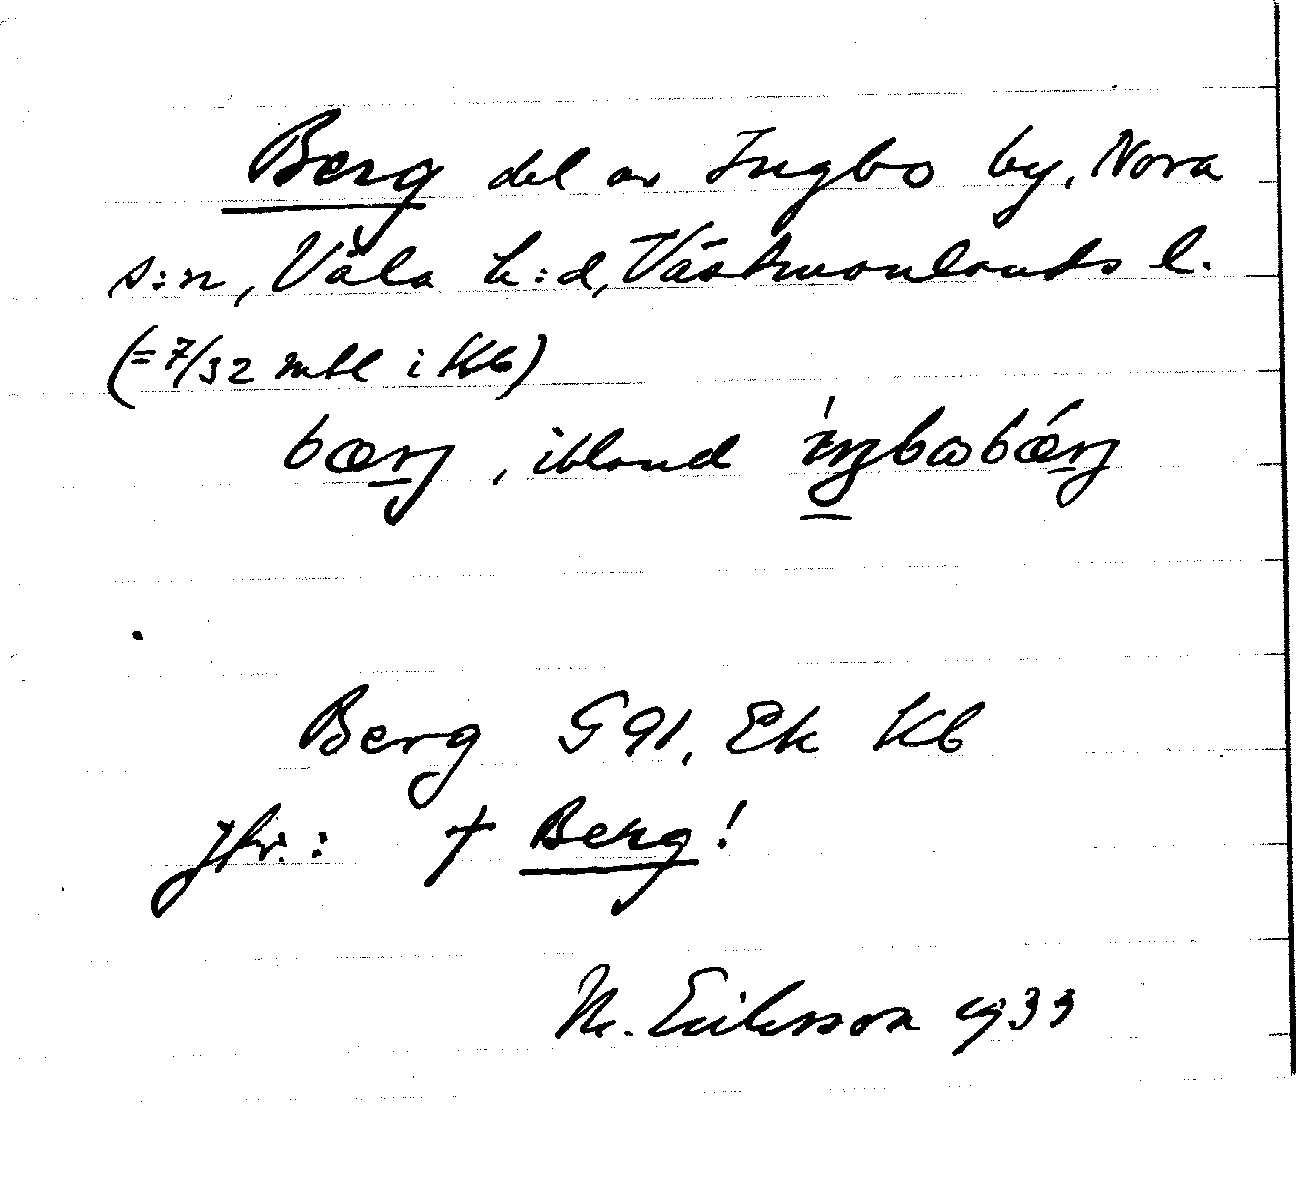 Berg del av Ingbo by, Nora
s:n, Våla h:d, Västmanlands l.
(=7/32 mtl i Kb)
bærj, ibland
Berg G 91, Ek Kb
Jfr.: † Berg!
M. Eriksson 1933